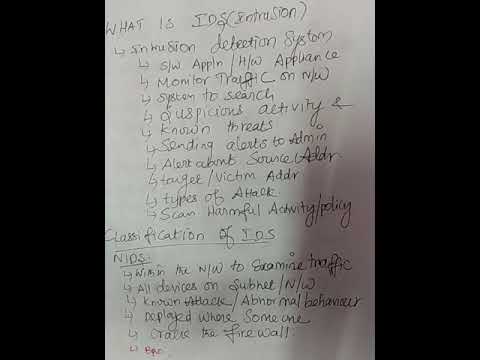 WHAT IS IDS(Intrusion)
↳ Intrusion detection System
↳ S/W Appln / H/W Appliance
↳ Monitor Traffic on N/W
↳ System to search
↳ Suspicious activity &
↳ Known threats
↳ Sending alerts to Admin
↳ Alert about Source Addr.
↳ target/victim Addr
↳ types of Attack.
↳ Scan Harmful Activity/policy
Classification of IDS
NIDS:
↳ Within the N/W to Examine traffic
↳ All devices on Subnet/N/W
↳ Known Attack/Abnormal behaviour
↳ Deployed where Someone
↳ Crack the firewall.